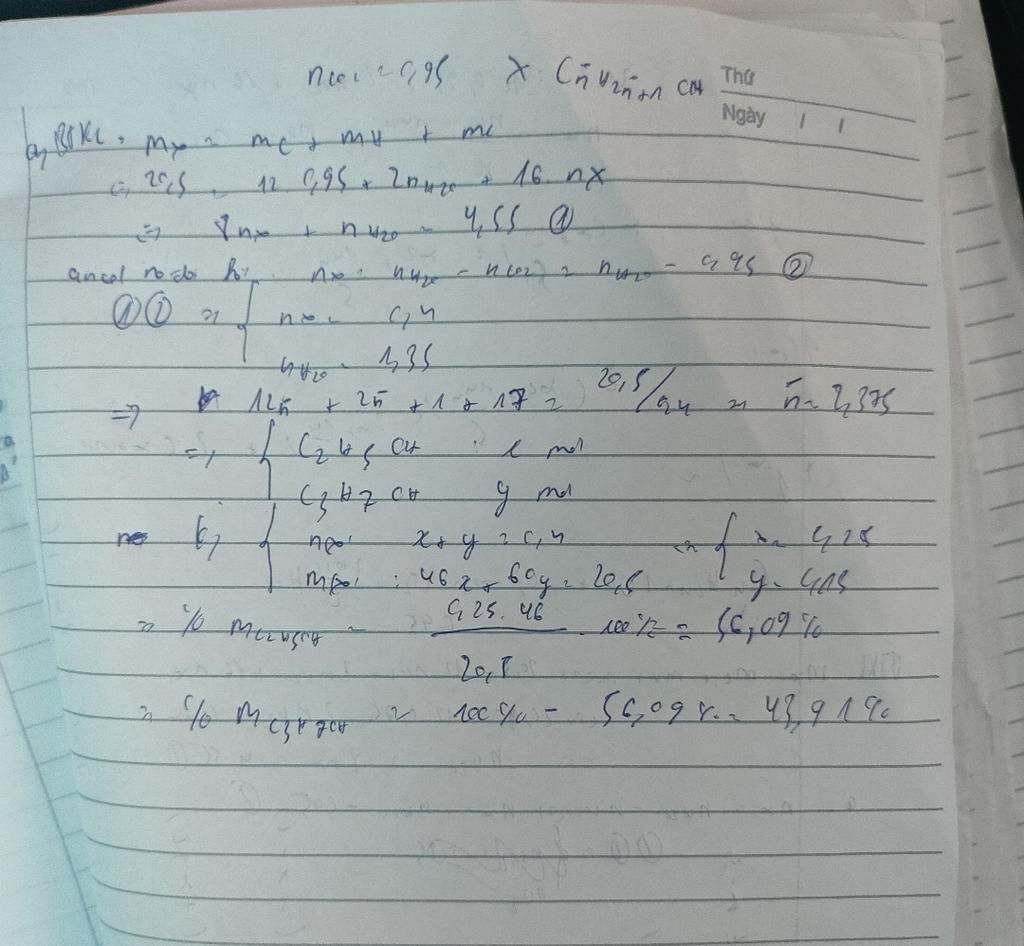 nCO2 = 0,95 X : Cn̄H2n̄+1 OH Thứ
Ngày / /
a, BTKL : mX = mC + mH + mO
⇒ 20,5 = 12 . 0,95 + 2nH2O + 16 . nX
⇒ 8nX + nH2O = 4,55 ①
ancol no đơn hở : nX = nH2O - nCO2 = nH2O - 0,95 ②
①② ⇒ { nX = 0,4
nH2O = 1,35
⇒ 12n̄ + 2n̄ + 1 + 17 = 20,5/0,4 ⇒ n̄ = 2,375
⇒ { C2H5OH : x mol
C3H7OH y mol
b, { nX : x + y = 0,4 ⇔ { x = 0,25
mX : 46x + 60y = 20,5 y = 0,15
⇒ % mC2H5OH = 0,25 . 46 / 20,5 . 100% = 56,09%
⇒ % mC3H7OH = 100% - 56,09% = 43,91%